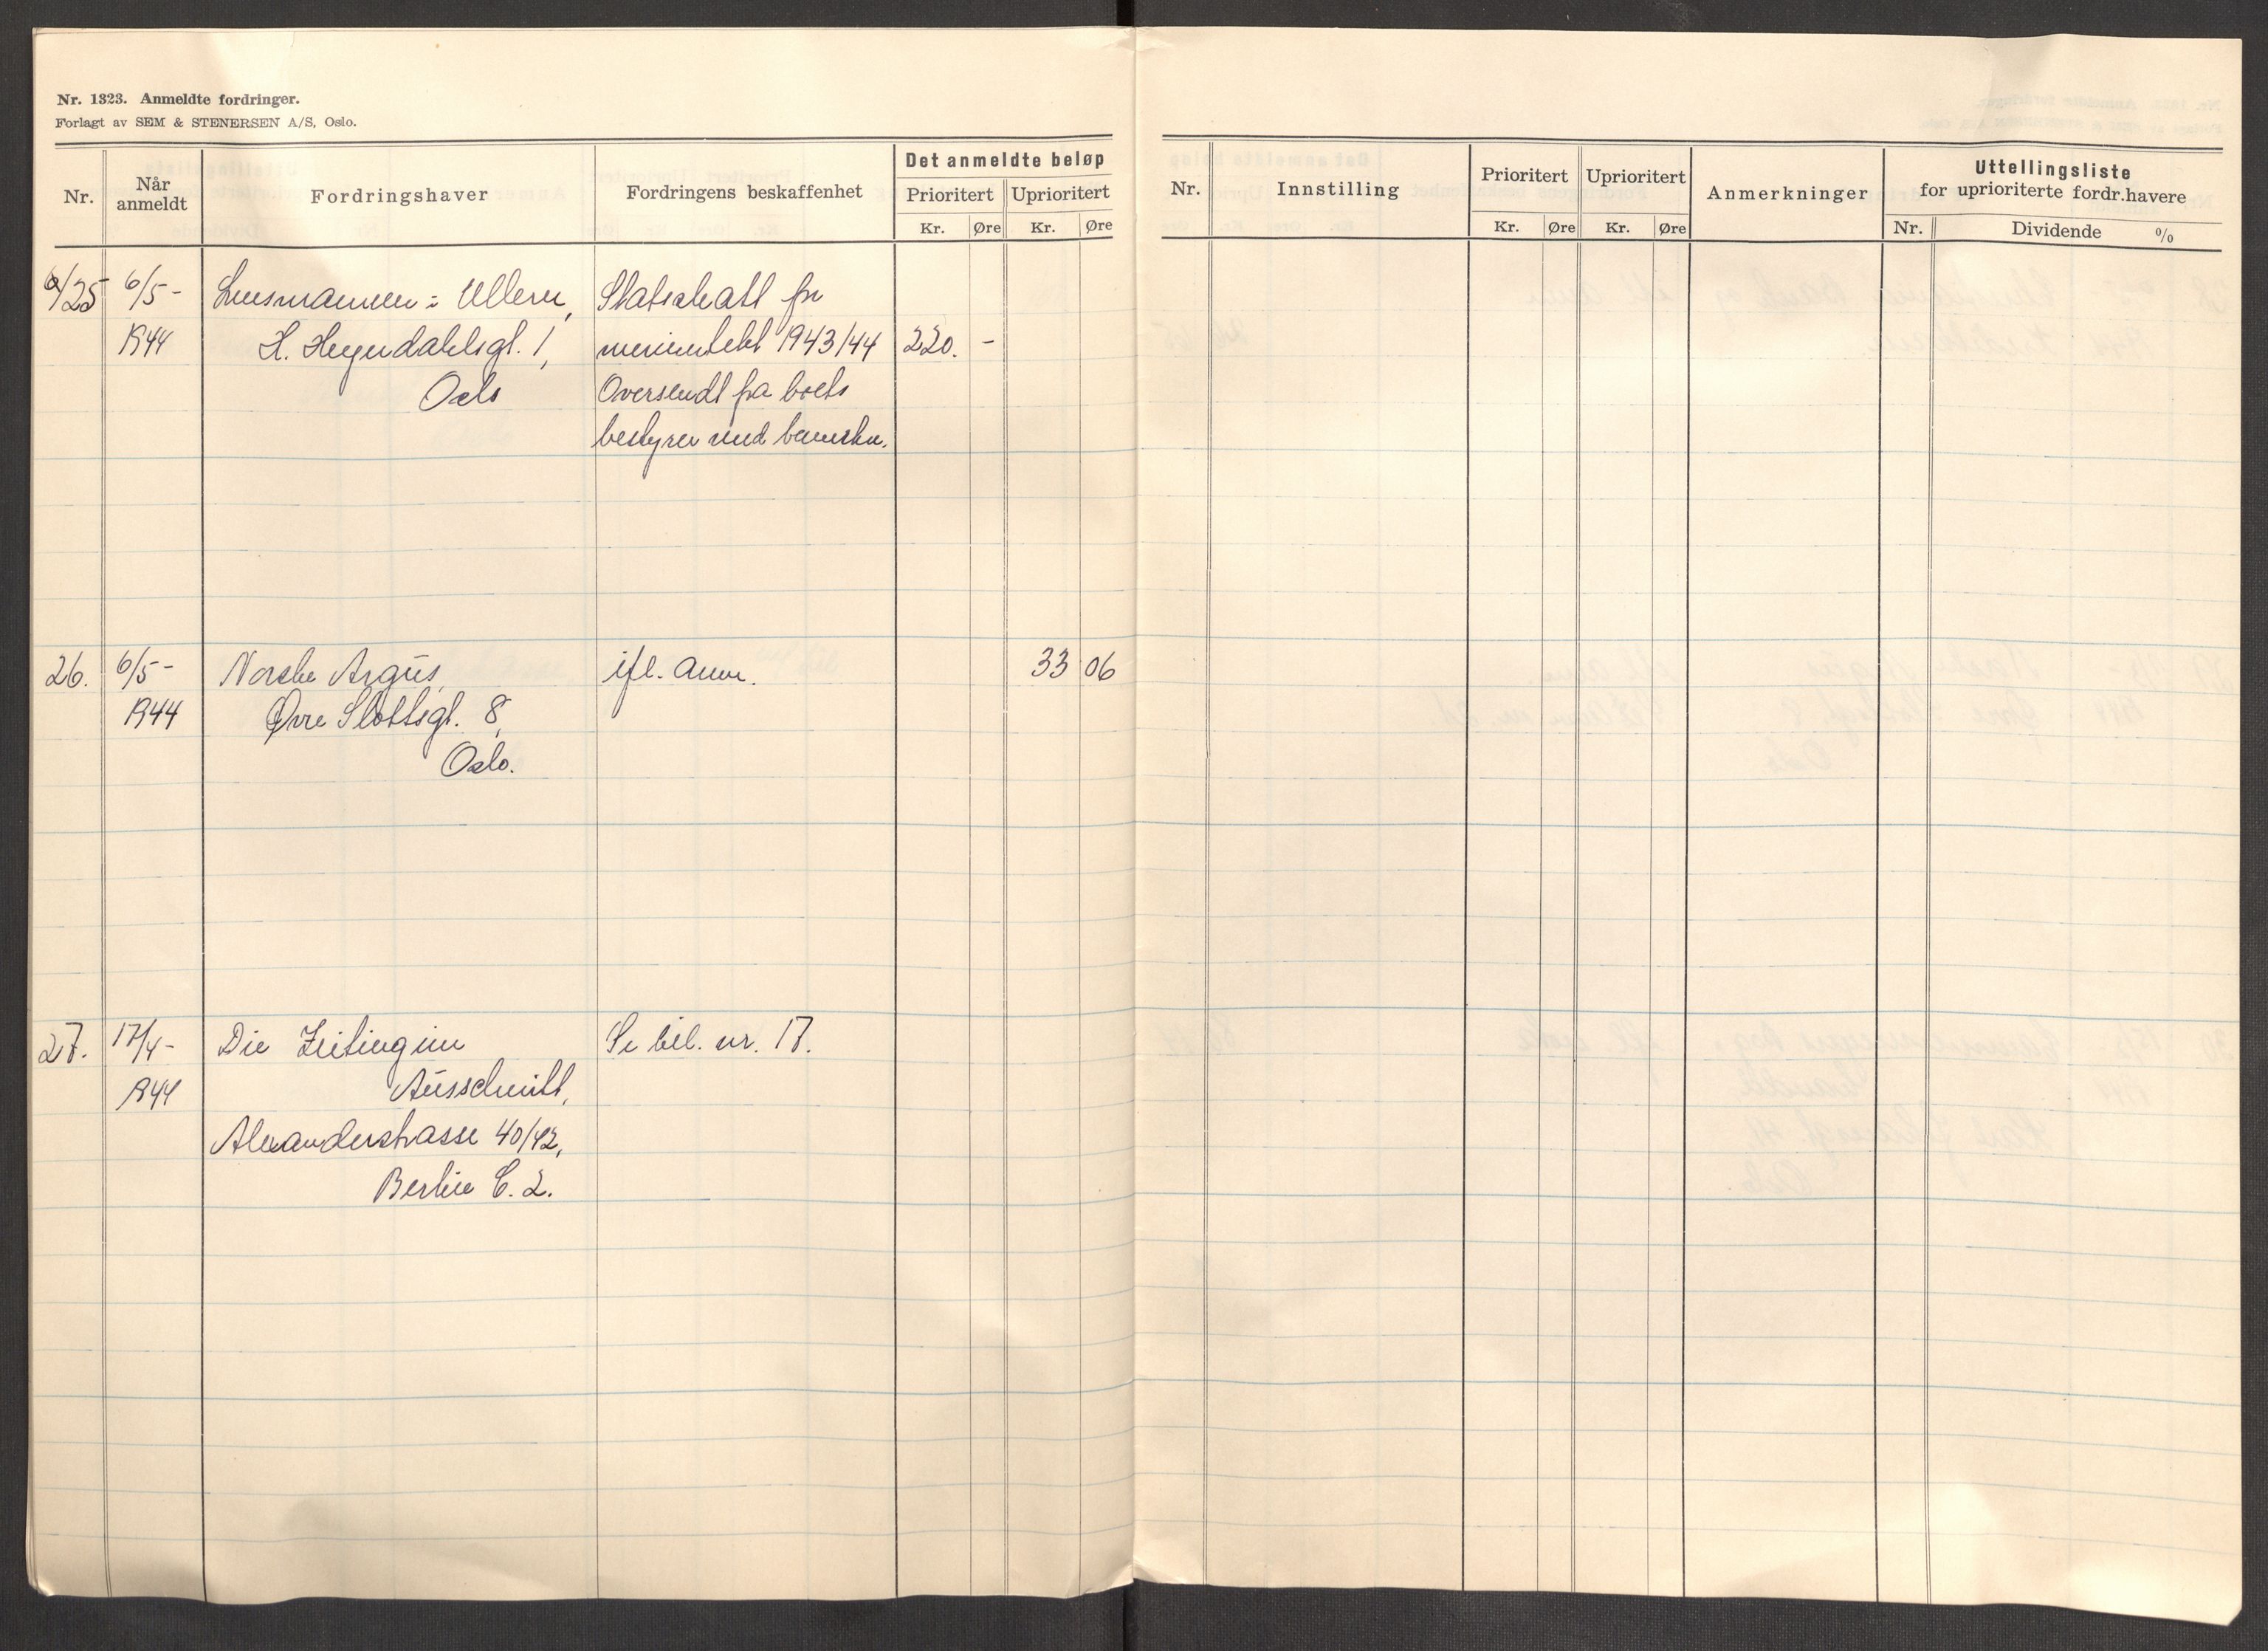 Nr. 1323. Anmeldte fordringer.
Forlagt av SEM & STENERSEN A/S, Oslo.
Nr.
Når anmeldt
Fordringshaver
Fordringens beskaffenhet
Det anmeldte beløp
Prioritert
Uprioritert
Kr.
Øre
Kr.
Øre
Nr.
Innstilling
Prioritert
Uprioritert
Kr.
Øre
Kr.
Øre
Anmerkninger
Uttellingsliste
for uprioriterte fordr.havere
Nr.
Dividende %
/25 6/5- Lensmannen i Ullern, Statsskatt for
1944 H. Heyerdahlsgt. 1, 1943/44 220. -
Oslo Oversendt fra boets
bestyrer med
26. 6/5- Norske Argus, ifl. anm. 33 06
1944 Øvre Slottsgt. 8,
Oslo.
27. 17/4- Die Zeitung im Se bil. nr. 17.
1944 Ausschnitt,
Alexanderstrasse 40/42,
Berlin C. 2.